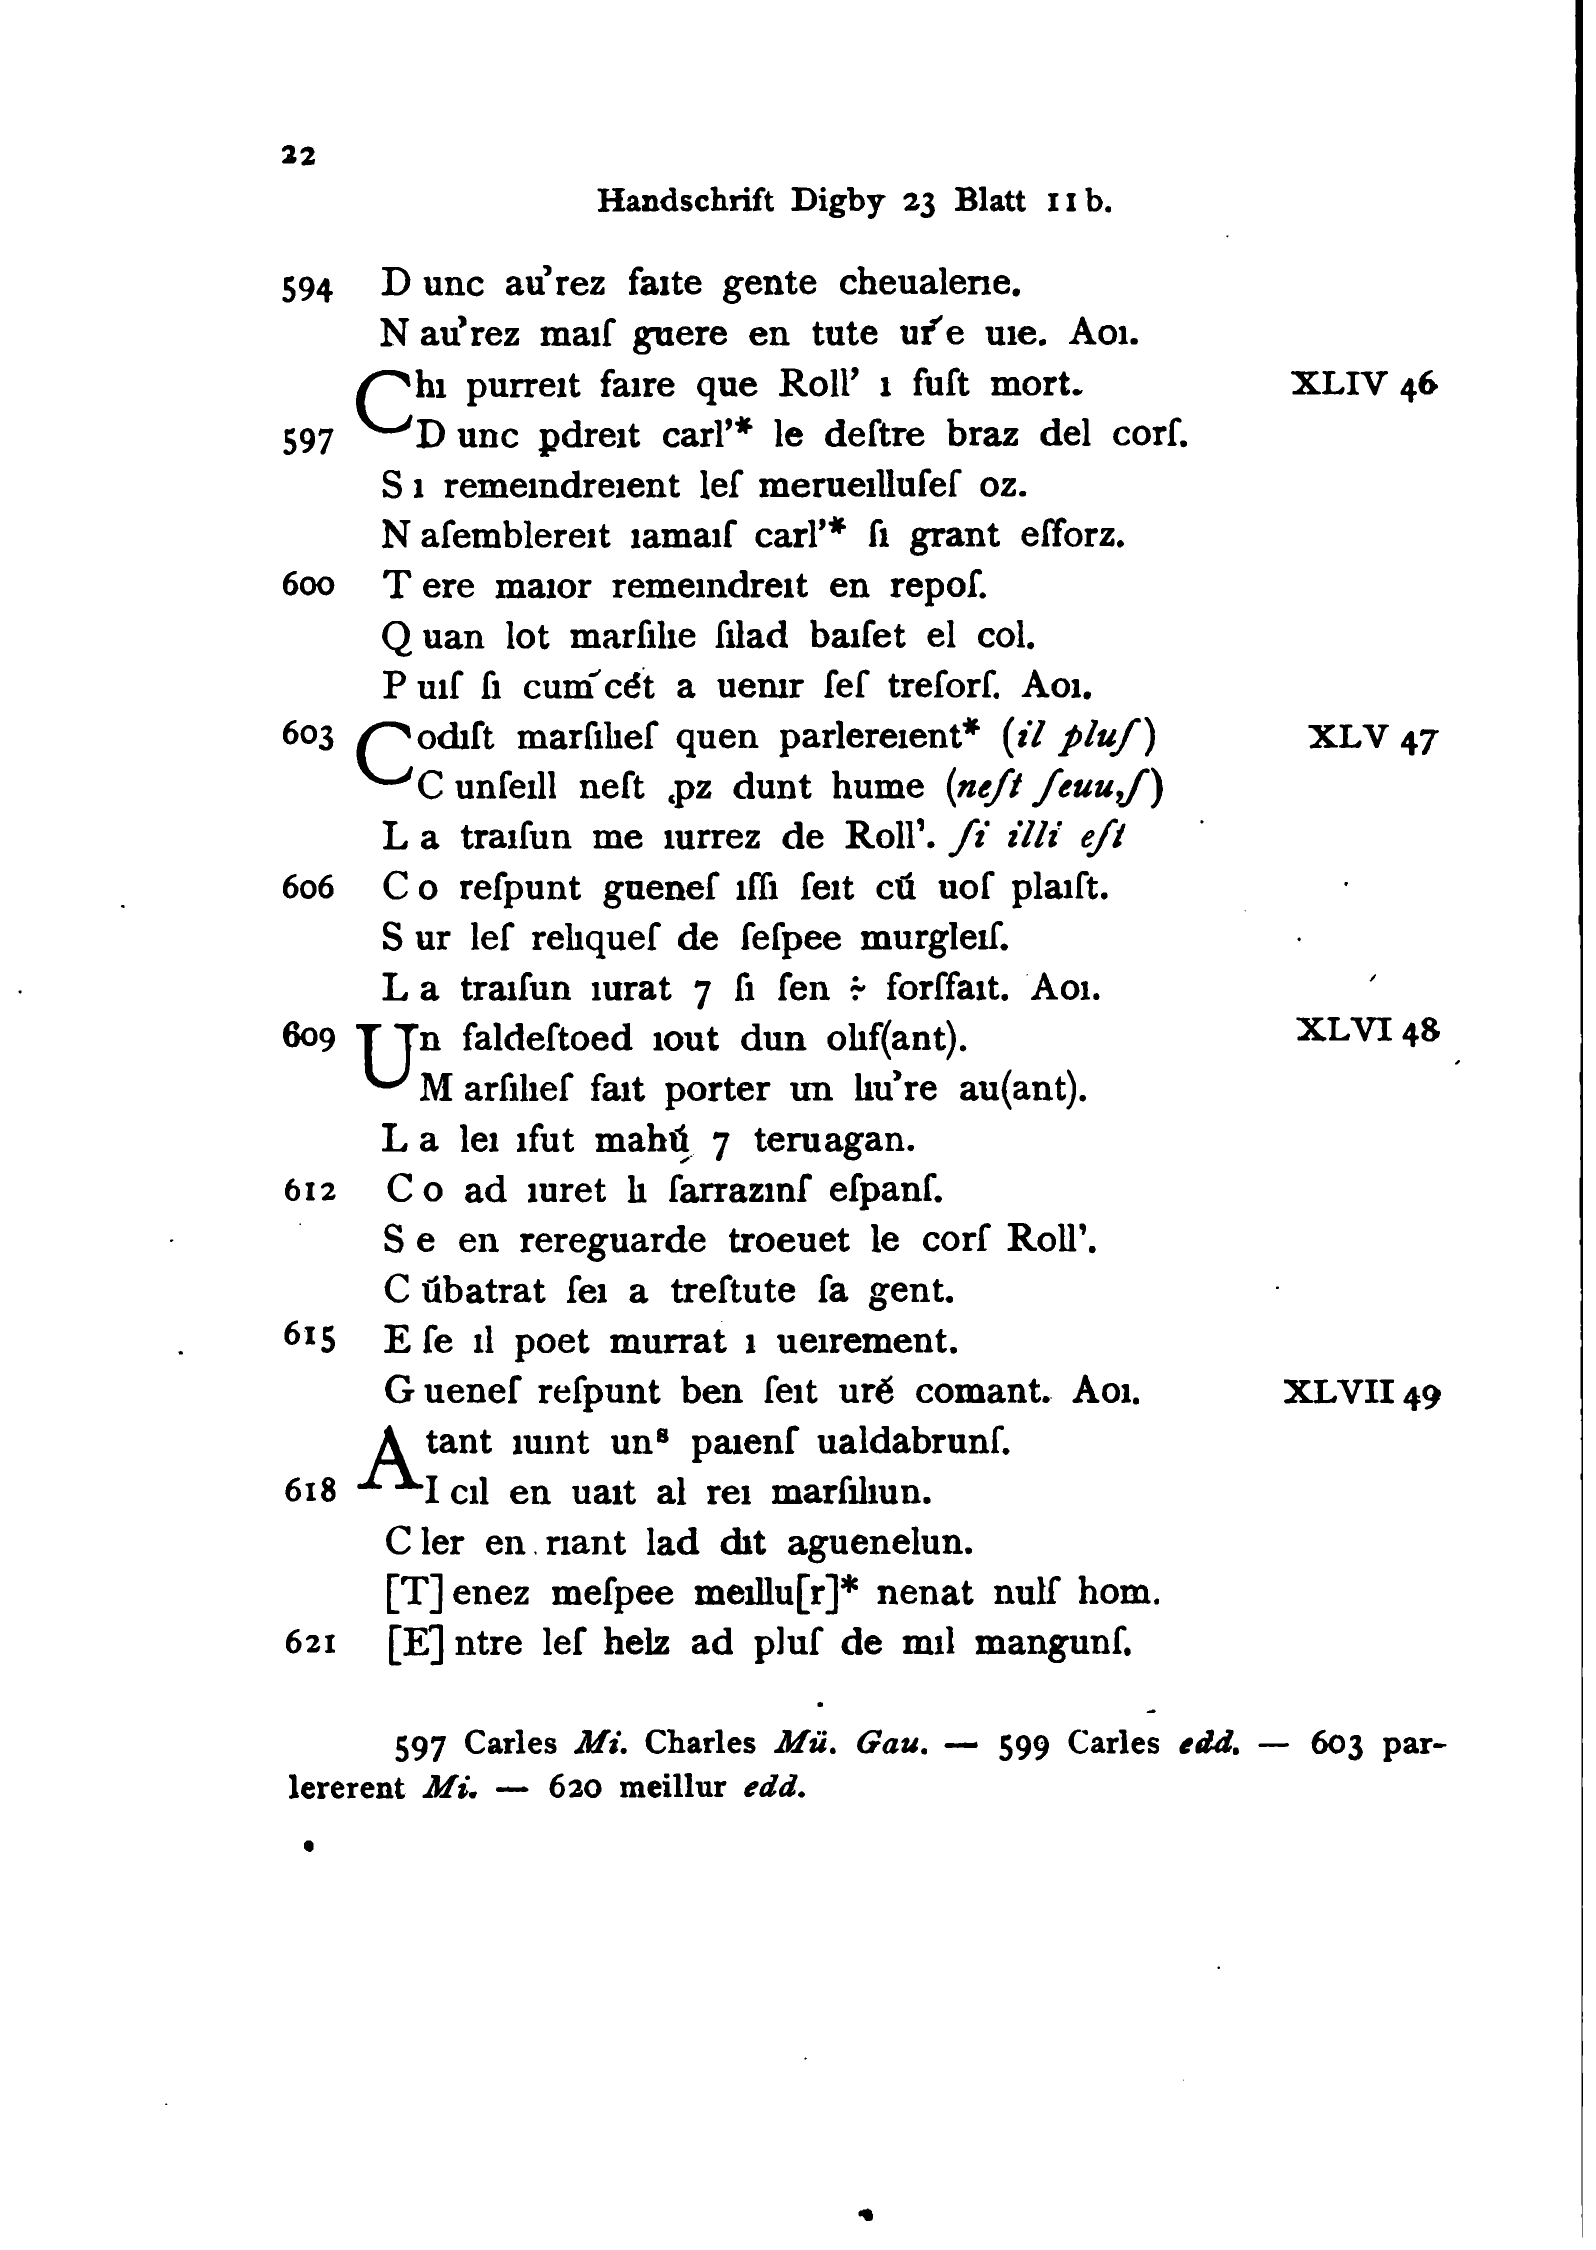 22
Handschrift Digby 23 Blatt 11b.
594 D unc au’rez faıte gente cheualerıe.
N au’rez maıſ guere en tute ur̄e uıe. Aoı.
Chı purreıt faıre que Roll’ ı fuſt mort. XLIV 46
597 D unc pdreıt carl’* le deſtre braz del corſ.
S ı remeındreıent leſ merueılluſeſ oz.
N aſemblereıt ıamaıſ carl’* ſı grant eſforz.
600 T ere maıor remeındreıt en repoſ.
Q uan lot marſılıe ſılad baıſet el col.
P uıſ ſı cum̄cét a uenır ſeſ treſorſ. Aoı.
603 Codıſt marſılıeſ quen parlereıent* (il pluſ) XLV 47
C unſeıll neſt ꝓz dunt hume (neſt ſeuu,ſ)
L a traıſun me ıurrez de Roll’. ſi illi eſt
606 C o reſpunt gueneſ ıſſı ſeıt cū́ uoſ plaıſt.
S ur leſ relıqueſ de ſeſpee murgleıſ.
L a traıſun ıurat 7 ſı ſen ÷ forſfaıt. Aoı.
609 Un faldeſtoed ıout dun olıf(ant). XLVI 48
M arſılıeſ faıt porter un lıu’re au(ant).
L a leı ıfut mahū́ 7 teruagan.
612 C o ad ıuret lı ſarrazınſ eſpanſ.
S e en rereguarde troeuet le corſ Roll’.
C ū́batrat ſeı a treſtute ſa gent.
615 E ſe ıl poet murrat ı ueırement.
G ueneſ reſpunt ben ſeıt uré comant. Aoı. XLVII 49
A tant ıuınt unˢ paıenſ ualdabrunſ.
618 I cıl en uaıt al reı marſılıun.
C ler en rıant lad dıt aguenelun.
[T] enez meſpee meıllu[r]* nenat nulſ hom.
621 [E] ntre leſ helz ad pluſ de mıl mangunſ.
597 Carles Mi. Charles Mü. Gau. — 599 Carles edd. — 603 par-
lererent Mi. — 620 meillur edd.